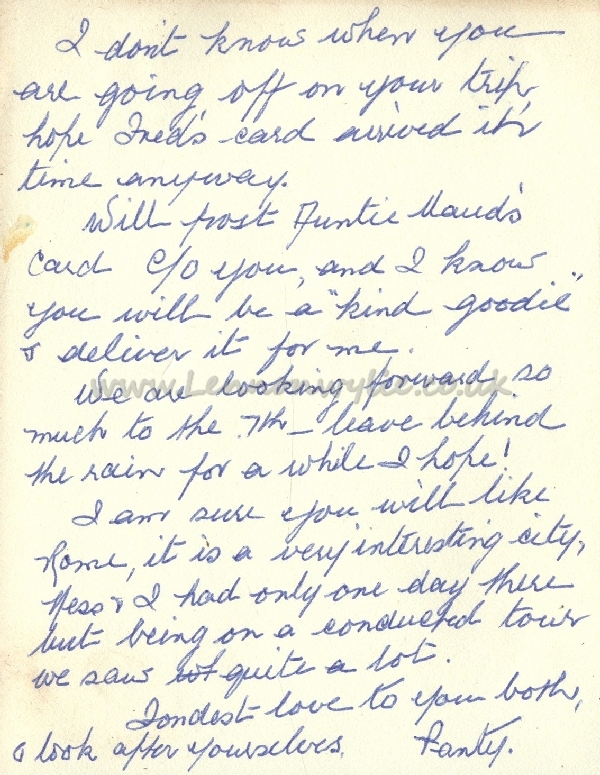 I don't know when you
are going off on your trip,
hope Fred's card arrived in
time anyway.
Will post Auntie Maud's
card c/o you, and I know
you will be a "kind goodie"
& deliver it for me.
We are looking forward so
much to the 7th – leave behind
the rain for a while I hope!
I am sure you will like
Rome, it is a very interesting city,
Ness & I had only one day there
but being on a conducted tour
we saw quite a lot.
Fondest love to you both,
& look after yourselves. Panty.